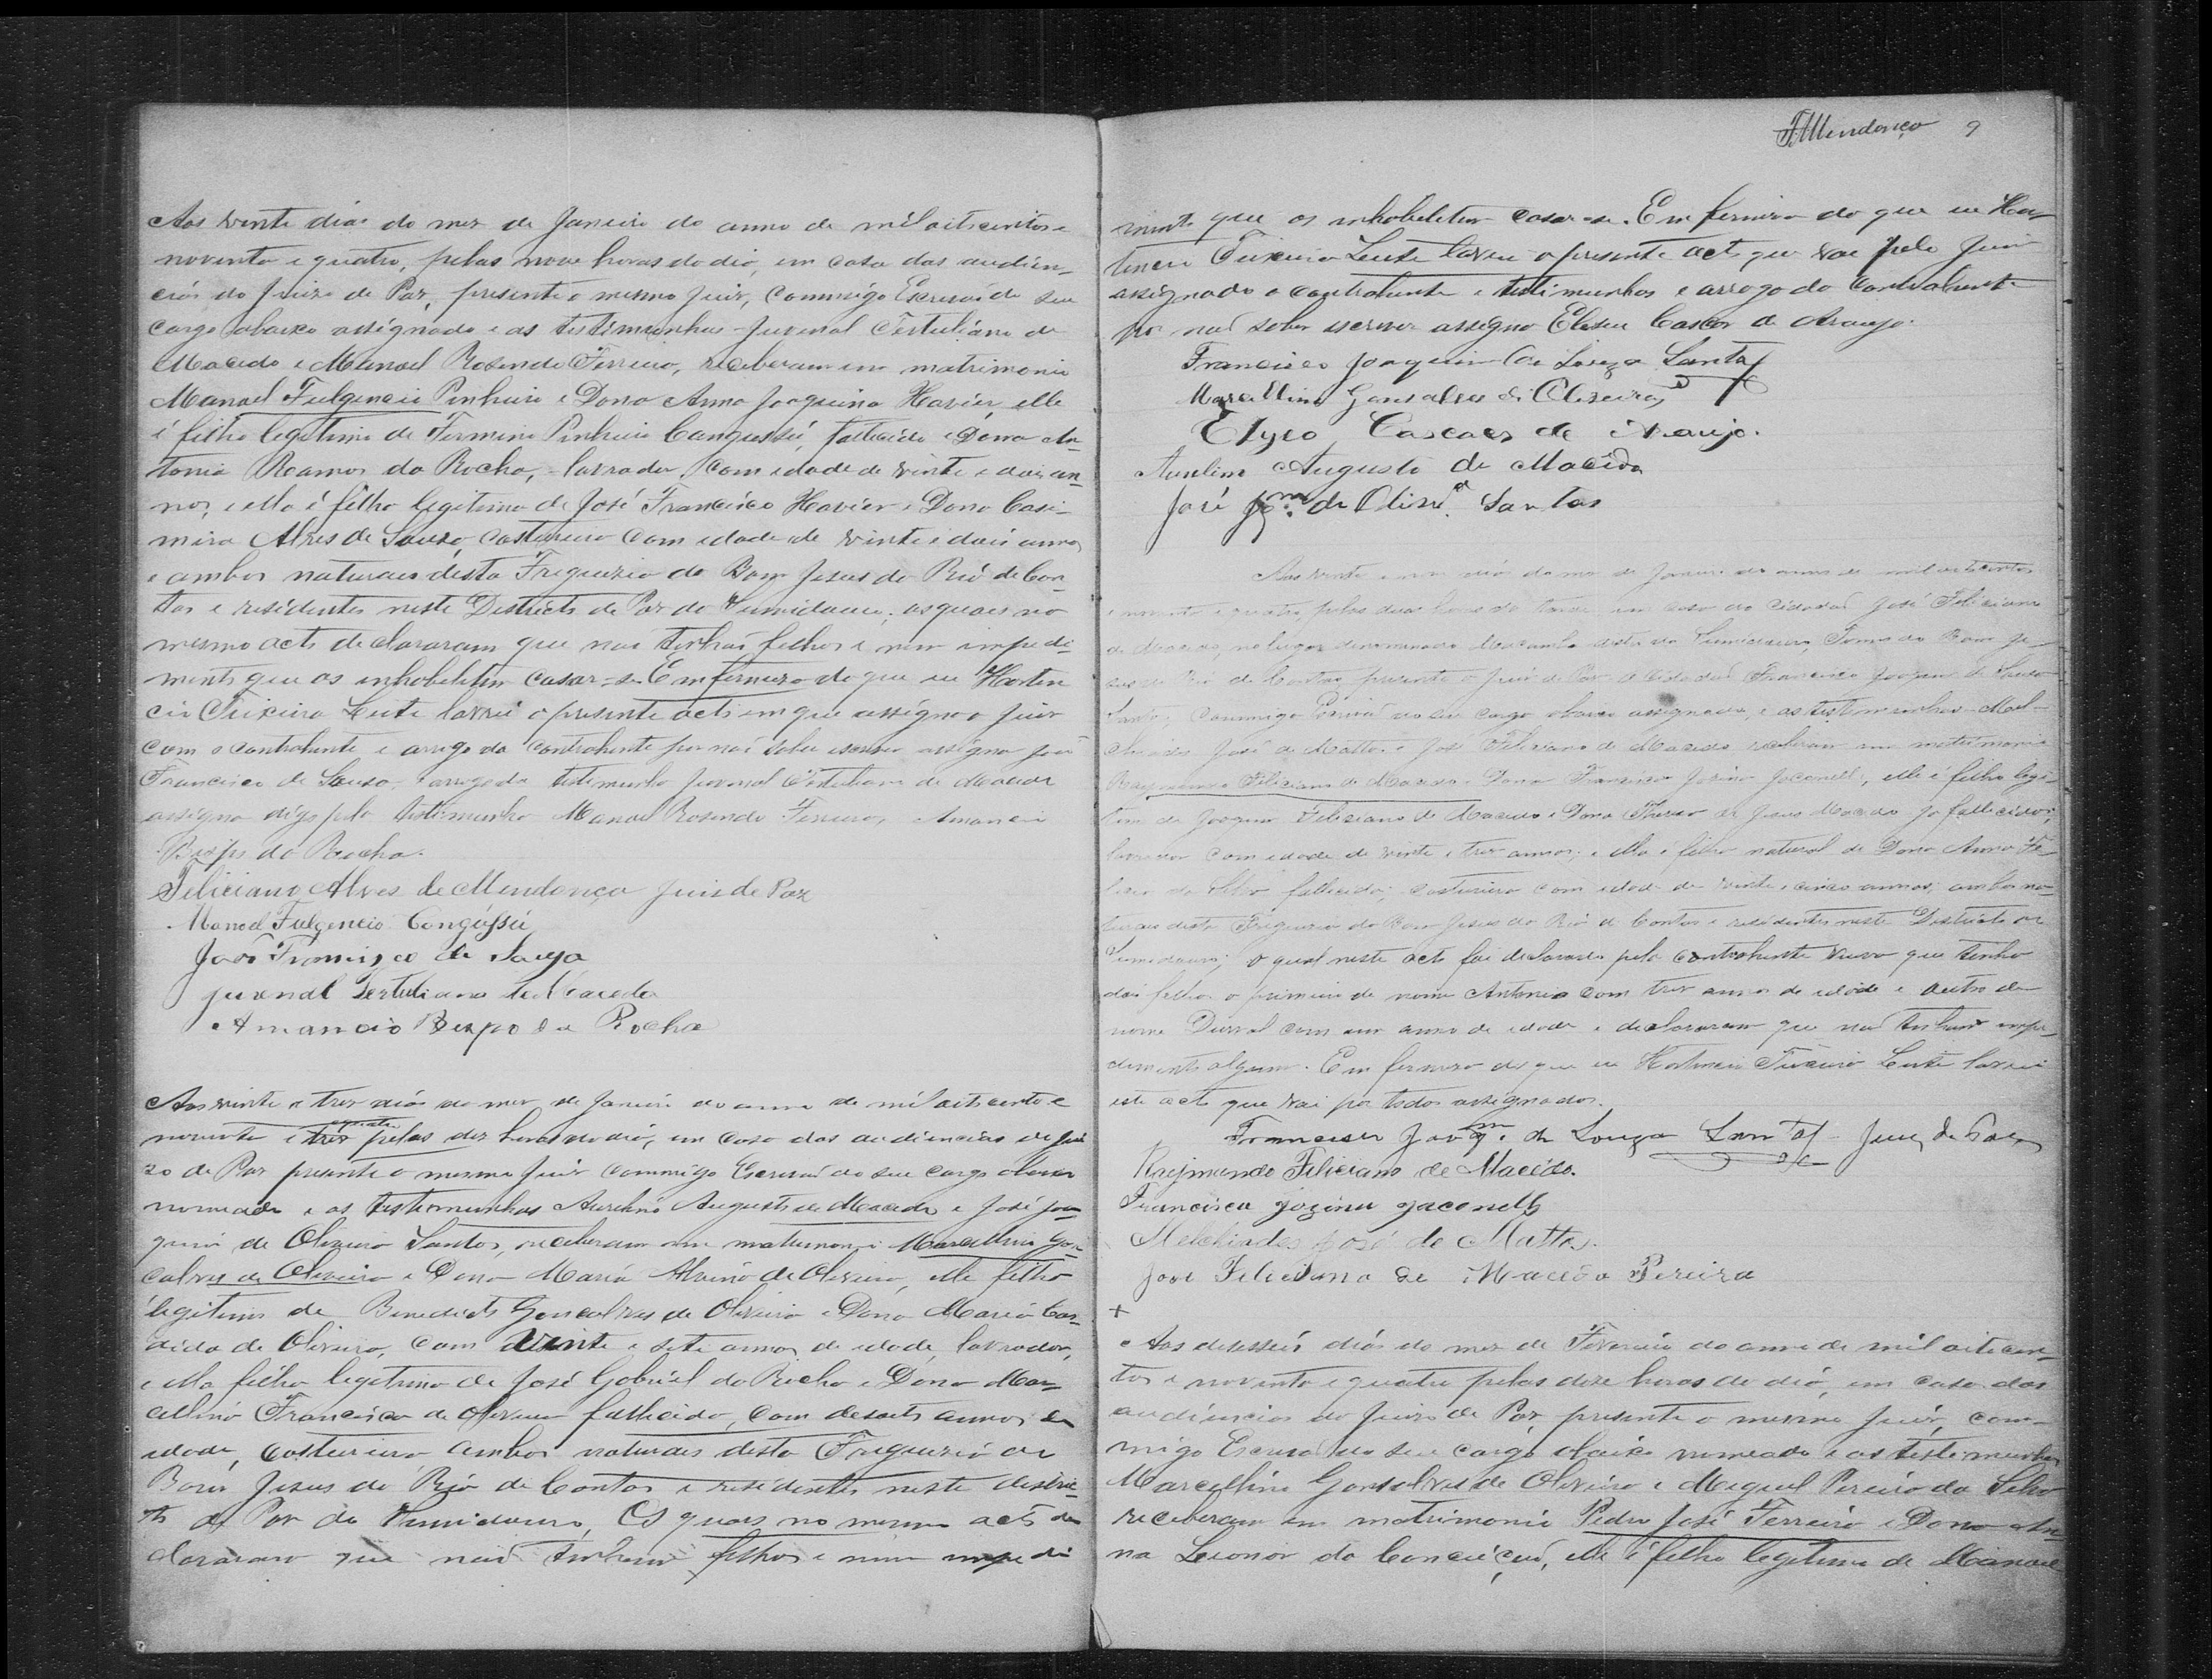 Aos vinte dias do mez de Janeiro do anno de mil oitocentos e
noventa e quatro, pelas nove horas do dia, em casa das audien-
cias do Juizo de Paz, presente o mesmo Juiz, commigo Escrivão do seu
cargo abaixo assignado e as testimunhas Juvenal Tertuliano de
Macedo e Manoel Rosendo Ferreira, receberam em matrimonio
Manoel Fulgencio Pinheiro e Dona Anna Joaquina Xavier, elle
é filho legitimo de Firmino Pinheiro Cangussú, fallecido e Dona An-
tonia Ramos da Rocha, lavrador, com idade de vinte e dois an-
nos, e ella é filha legitima de José Francisco Xavier e Dona Casi-
mira Alves de Souza, costureira com idade de vinte e dois annos
e ambos naturaes desta Freguezia do Bom Jesus do Rio de Con-
tas e residentes neste Districto de Paz do Sumidouro, os quaes no
mesmo acto declararam que não tinhão filhos e nem impedi-
mento que os inhabelitem casar-se. Em fermeza do que eu Horten
cio Teixeira Leite lavrei o presente acto em que assigna o juiz
com o contrahente e arrogo da contrahente por não saber escrever assigna João
Francisco de Souza e arrogo da testimunha Juvenal Tertuliano de Macedo
assigna digo pela testimunha Manoel Rosendo Ferreira, Amancio
Bispo da Rocha.
Feliciano Alves de Mendonça Juis de Paz
Manoel Fulgencio Congussú
João Francisco de Souza
Juvenal Tertuliano de Macedo
Amancio Bispo da Rocha
Aos vinte e tres dias do mez de Janeiro do anno de mil oitocento e
noventa e tres quatro pelas dez horas do dia, em casa das audiencias do Jui
zo de Paz presente o mesmo Juiz commigo Escrivão do seu cargo abaixo
nomeado e as testimunhas Aurelino Augusto de Macedo e José Joa
quim de Oliveira Santos, receberam em matrimonio Marcellino Gon
calves de Oliveira e Dona Maria Alvina de Oliveira, elle filho
legitimo de Benedicto Goncalves de Oliveira e Dona Maria Can-
dida de Oliveira, com vinte e sete annos de idade, lavrador,
e ella filha legitima de José Gabriel da Rocha e Dona Mar-
cellina Francisca de Oliveira fallecida, com desoito annos de
idade, costureira, ambos naturaes desta Freguezia do
Bom Jesus do Rio de Contas e residentes neste distric-
to de Paz do Sumidouro, Os quaes no mesmo acto de
clararam que não tinham filhos e nem impedi
F. Mendonça 9
mento que os inhabeletem casar-se. Em fermeza do que eu Hor
tencio Teixeira Leite lavrei o presente acto que vae pelo Juiz
assignado o contrahente e testimunhas e arrogo da contrahente
por não saber escrever assigna Eliseu Cascaes de Araujo.
Francisco Joaquim de Souza Santos
Marcellino Gonsalves de Oliveira
Elyseo Cascaes de Araujo.
Aurelino Augusto de Macêdo
José Jom. de Olivra. Santos
Aos vinte e um dia do mez de Janeiro do anno de mil oitocentos
e noventa e quatro, pelas duas horas da tarde em casa do cidadão José Feliciano
de Macedo, no lugar denominado Mocambo districto do Sumidouro, Termo do Bom Je-
sus do Rio de Contas, presente o Juiz de Paz o Cidadão Francisco Joaquim de Souza
Santos, Commigo Escrivão do seu cargo abaixo assignado, e as testimunhas Mel-
chiades José de Mattos e José Feliciano de Macedo receberam em matrimonio
Raymundo Feliciano de Macedo e Dona Francisca Josina Jaconelli, elle é filho legi-
timo de Joaquim Feliciano de Macedo e Dona Thereza de Jesus Macedo ja fallecidos,
lavrador com idade de vinte e tres annos, e ella é filha natural de Dona Anna Fe
da Silva fallecida, costureira com idade de vinte e cinco annos, ambos na-
turaes desta Freguezia do Bom Jesus do Rio de Contas e residentes neste Districto do
Sumidouro; o qual neste acto foi declarado pelo contrahente que tinha
dois filhos o primeiro de nome Antonio com tres annos de idade e outro de
nome Durval com um anno de idade e declararam que não tinham impe-
dimento algum. Em fermeza do que eu Hortencio Teixeira Leite lavrei
este acto que vai por todos assignados.
Francisco Joaqm. de Souza Santos Juiz de Paz
Raymundo Feliciano de Macêdo.
Francisca Jozina Jaconelli
Melchiades José de Mattos.
José Feliciano de Macêdo Pereira
+
Aos desesseis dias do mez de Fevereiro do anno de mil oitocen-
tos e noventa e quatro pelas doze horas do dia, em casa das
audiencias do Juizo de Paz, presente o mesmo Juiz, com-
migo Escrivão do seu cargo abaixo nomeado e as testimunhas
Marcellino Gonsalves de Oliveira e Miguel Pereira da Silva
receberam em matrimonio Pedro José Ferreira e Dona An-
na Leonor da Conceição, elle é filho legitimo de Manoel